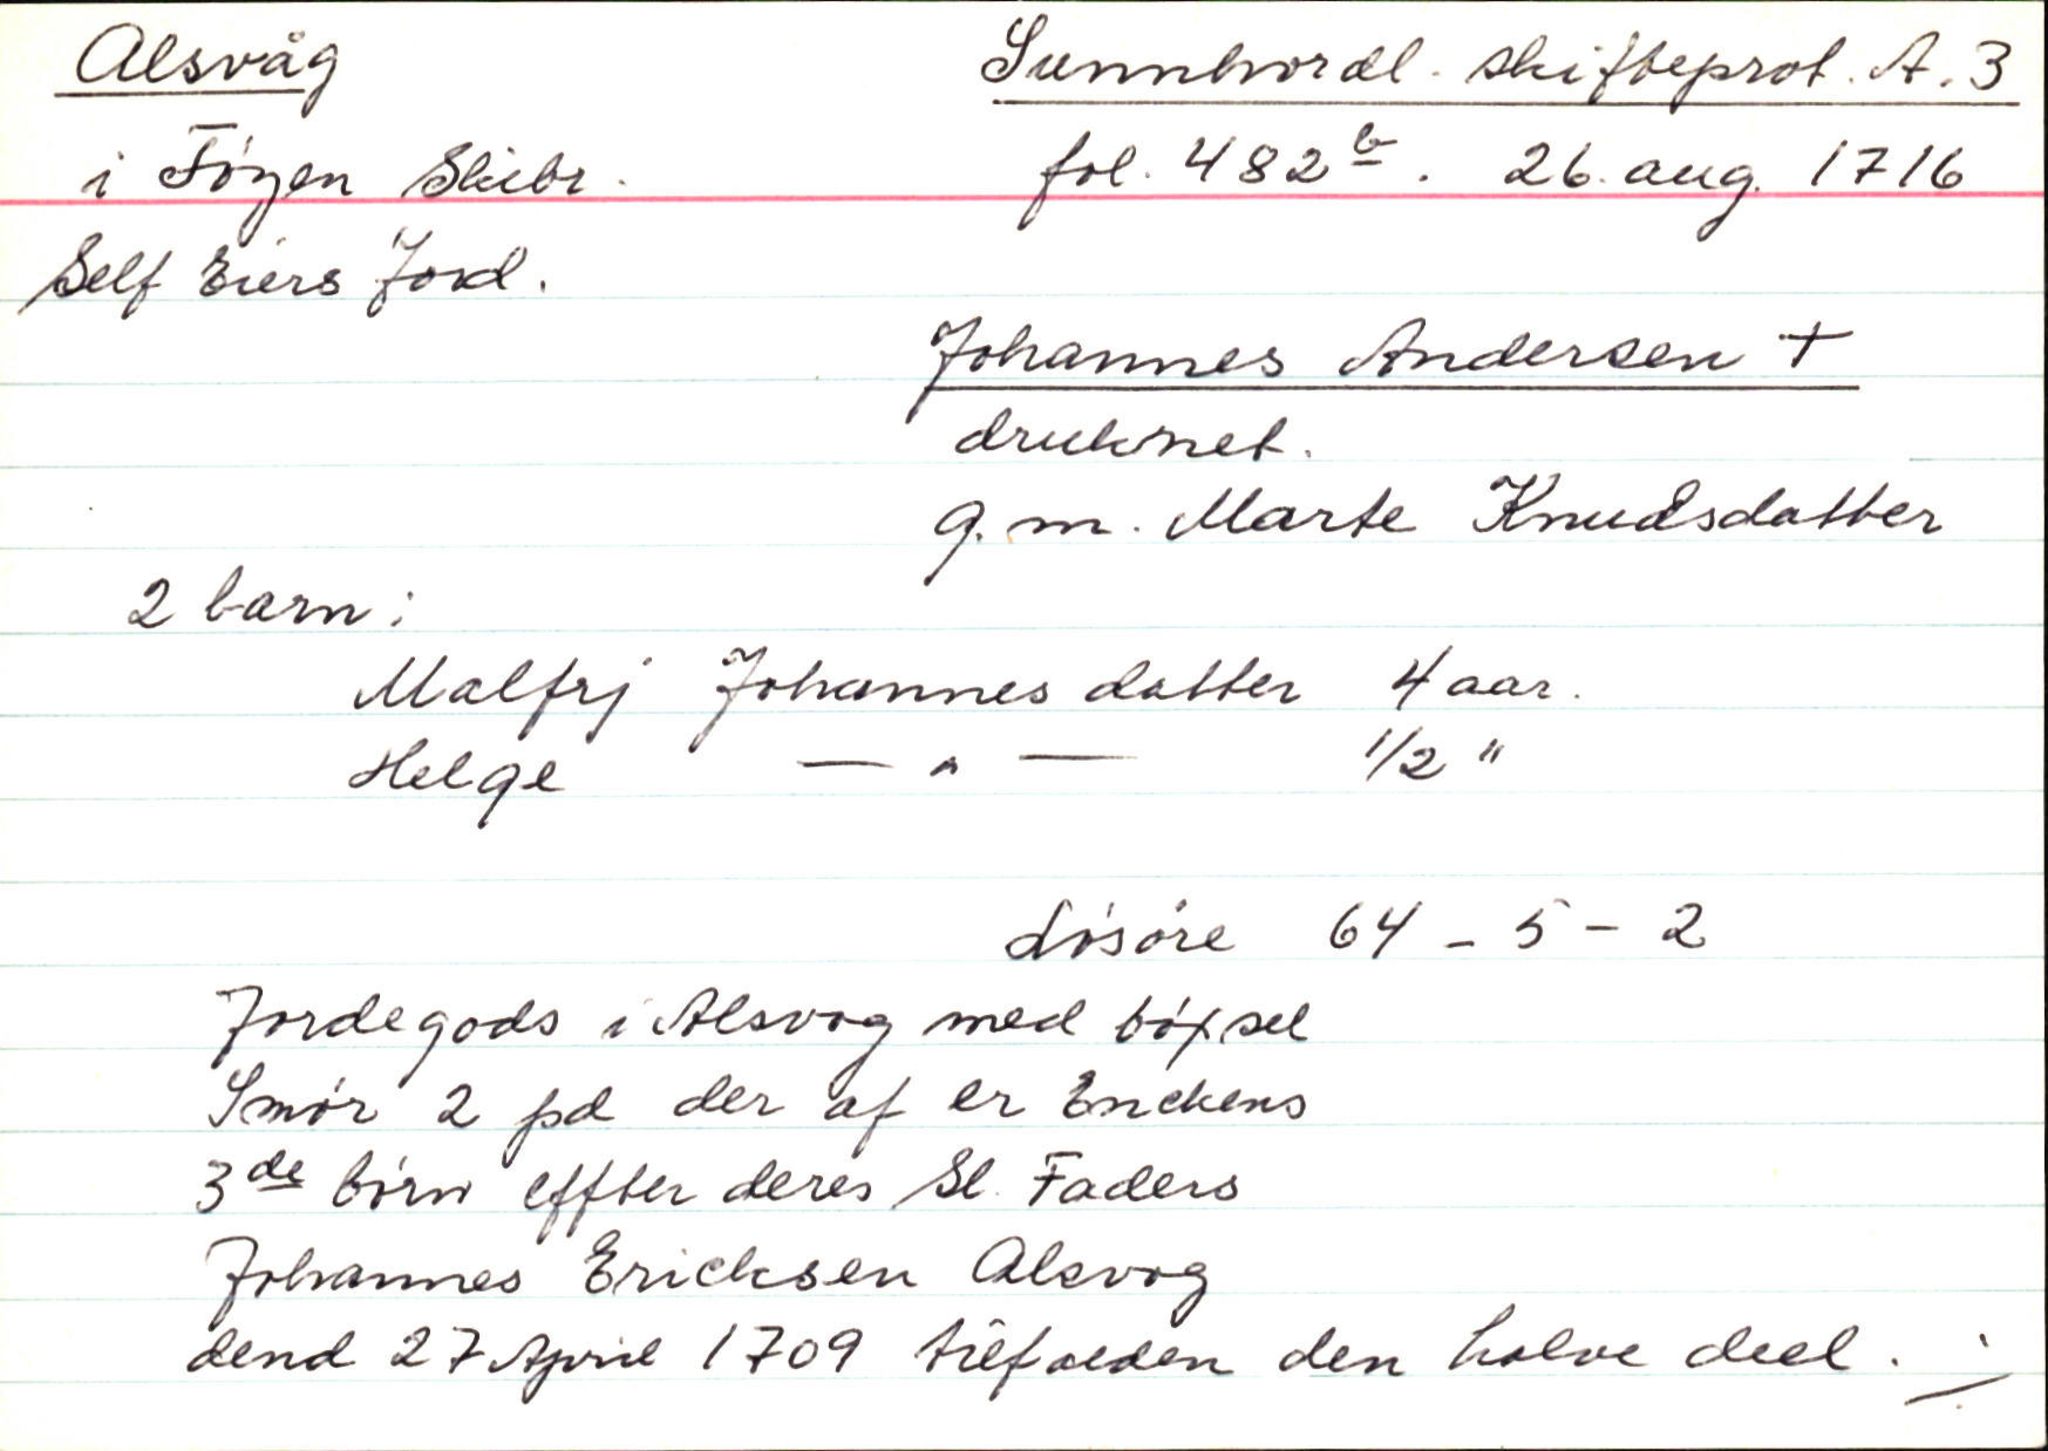 Alsvåg
Sunnhordl. skifteprot. A. 3
i Föyen Skibr.
fol. 482 b. 26. aug. 1716
Self Eiers Jord.
Johannes Andersen +
druknet.
g. m. Marte Knudsdatter
2 barn:
Malfrj Johannesdatter 4 aar.
Helge — " — 1/2 "
Lösöre 64 - 5 - 2
Jordegods i Alsvog med böxsel
Smör 2 pd der af er Enckens
3de börn effter deres Sl. Faders
Johannes Ericksen Alsvog
dend 27 April 1709 tilfalden den halve deel.